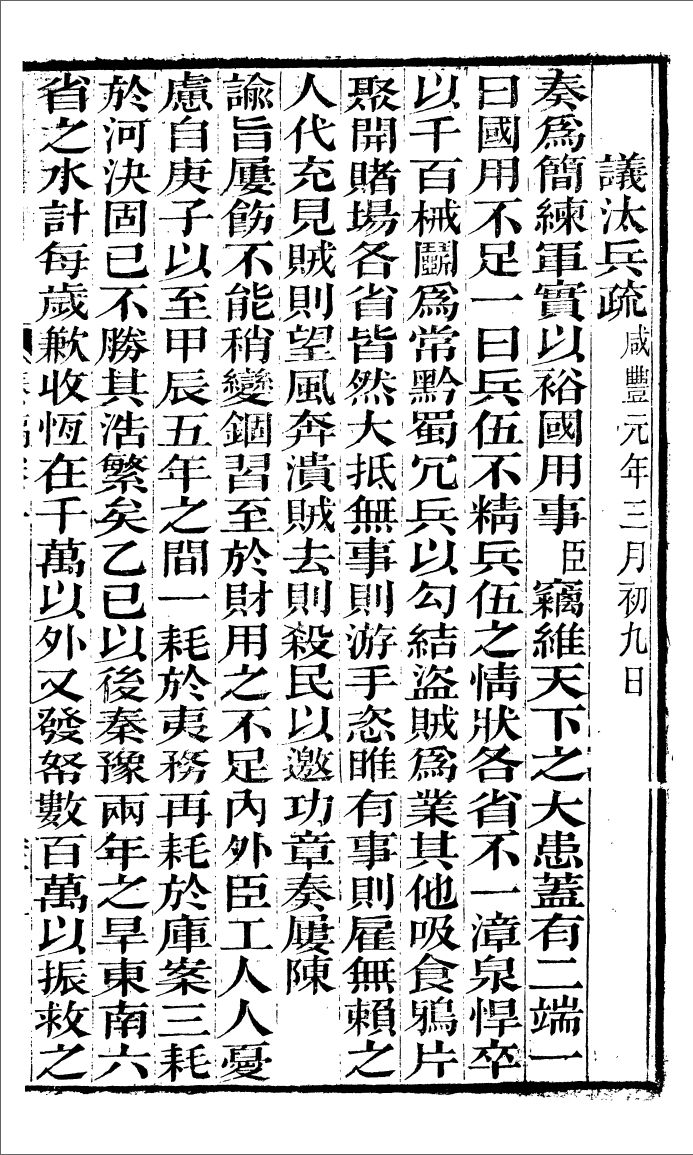 議汰兵疏咸豐元年三月初九日
奏爲簡練軍實以裕國用事臣竊維天下之大患蓋有二端一
曰國用不足一曰兵伍不精兵伍之情狀各省不一漳泉悍卒
以千百械鬭爲常黔蜀冗兵以勾結盜賊爲業其他吸食鴉片
聚開賭場各省皆然大抵無事則游手恣睢有事則雇無賴之
人代充見賊則望風奔潰賊去則殺民以邀功章奏屢陳
諭旨屢飭不能稍變錮習至於財用之不足內外臣工人人憂
慮自庚子以至甲辰五年之間一耗於夷務再耗於庫案三耗
於河決固已不勝其浩繁矣乙巳以後秦豫兩年之旱東南六
省之水計每歲歉收恆在千萬以外又發帑數百萬以振救之